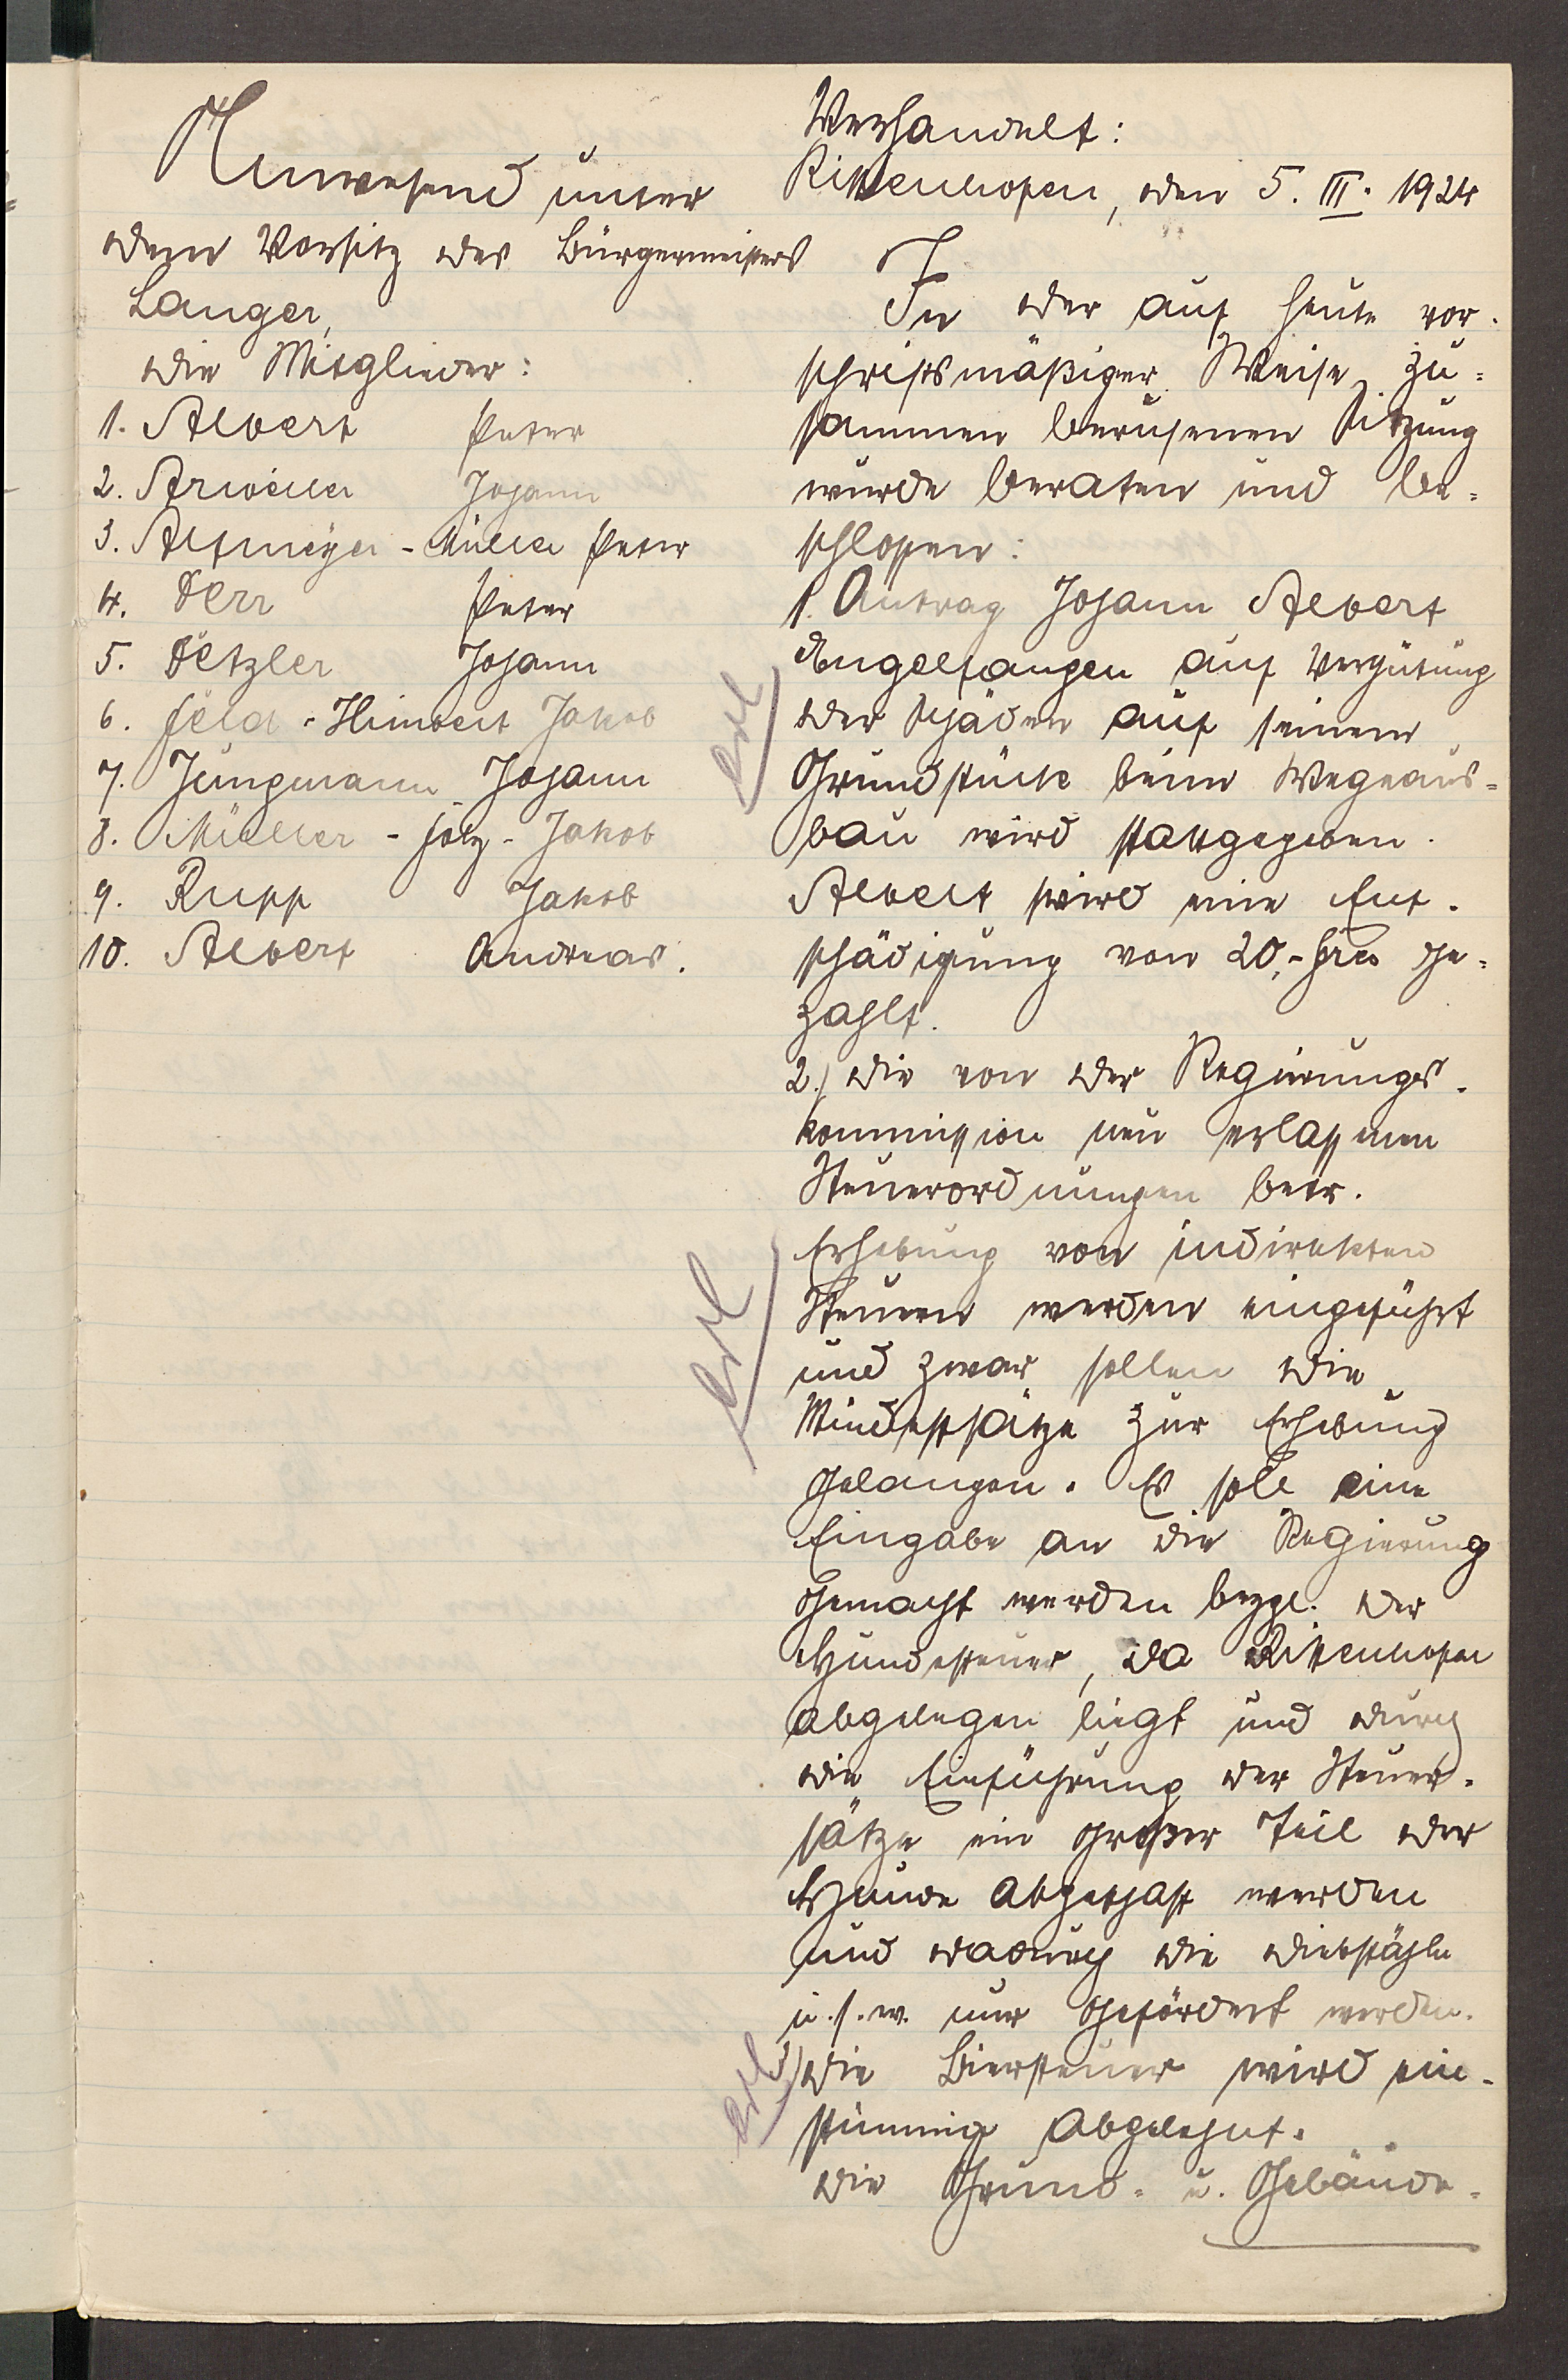 Anwesend unter
dem Vorsitz des Bürgermeisters
Langer,
die Mitglieder:
1. Albert Peter
2. Arweiler Johann
3. Altmeyer-Müller Peter
4. Derr Peter
5. Detzler Johann
6. Feld-Himbert Jakob
7. Jungmann Johann
8. Müller-Joly-Jakob
9. Rupp Jakob
10. Albert Andreas.
Verhandelt:
Rittenhofen, den 5. III. 1924
In der auf heute vor-
schriftsmäßiger Weise zu-
sammen berufenen Sitzung
wurde beraten und be-
schlossen:
1. Antrag Johann Albert
Engelfangen auf Vergütung
der Schäden auf seinem
Grundstück beim Wegeaus-
bau wird stattgegeben.
Albert wird eine Ent-
schädigung von 20,- Frcs ge-
zahlt.
2.) Die von der Regierungs-
kommission neu erlassenen
Steuerordnungen betr.
Erhebung von indirekten
Steuern werden eingeführt
und zwar sollen die
Mindestsätze zur Erhebung
gelangen. Es soll eine
Eingabe an die Regierung
gemacht werden bezgl. der
Hundesteuer, da Rittenhofen
abgelegen liegt und durch
die Einführung der Steuer-
sätze ein großer Teil der
Hunde abgeschafft werden
und dadurch die Diebstähle
u.s.w. nur gefördert werden.
3) Die Biersteuer wird ein-
stimmig abgelehnt.
Die Grund- u. Gebäude-
erl
erl
erl